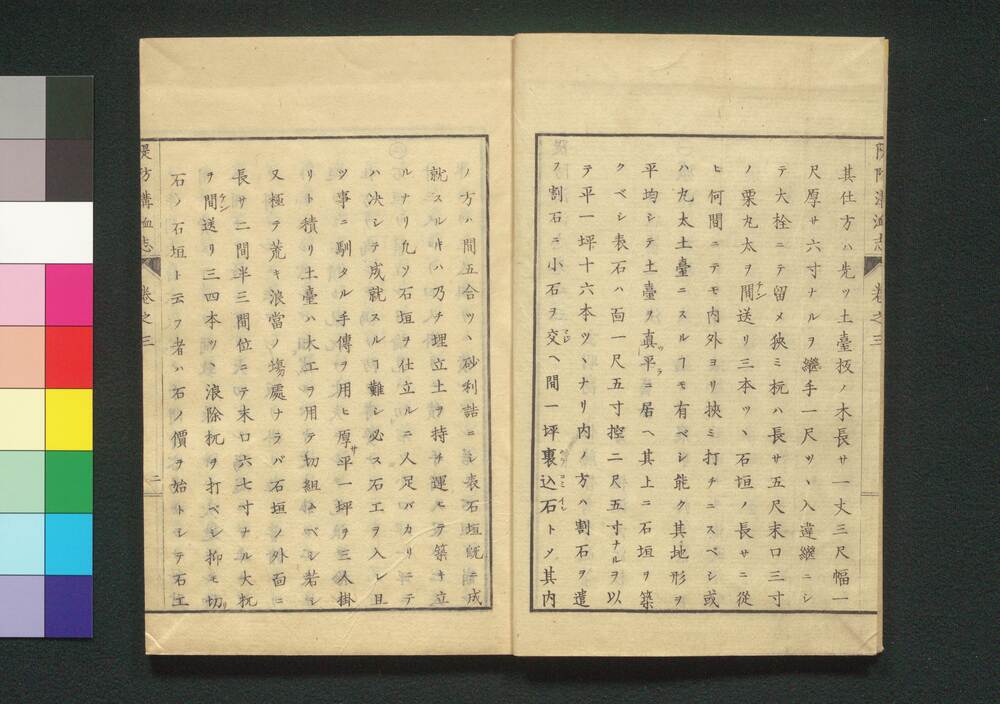 堤防溝洫志
巻之三
其仕方ハ先ツ土臺板ノ木長サ一丈三尺幅一
尺厚サ六寸ナルヲ継手一尺ツヽ入違継ニシ
テ大栓ニテ留メ狭ミ杭ハ長サ五尺末口三寸
ノ栗丸太ヲ間送リ三本ツヽ石垣ノ長サニ従
ヒ何間ニテモ内外ヨリ挟ミ打チニスベシ或
ハ丸太土臺ニスルヿモ有ベシ能ク其地形ヲ
平均シテ土臺ヲ真平ニ居ヘ其上ニ石垣リ築
クベシ表石ハ面一尺五寸控二尺五寸ナルヲ以
テ平一坪十六本ツヽナリ内ノ方ハ割石ヲ遣
フ割石ニ小石ヲ交ヘ間一坪裏込石トメ其内
ノ方ハ間五合ツヽ砂利詰ニシ表石垣既ニ成
就スルキハ乃チ埋立土ヲ持チ運ヒテ築キ立
ルナリ凡ソ石垣ヲ仕立ルニ人足バカリニテ
ハ決シテ成就スルヿ難シ必ス石工ヲ入レ且
ツ事ニ馴タル手傳ヲ用ヒ厚サ平一坪ヲ三人掛
リト積リ土臺ハ大工ヲ用テ切組ムベシ若シ
又極テ荒キ浪當ノ塲處ナラバ石垣ノ外面ニ
長サ二間半三間位ニテ末口六七寸ナル大杭
ヲ間送リ三四本ツヽ浪除杭ヲ打ベシ抑モ切
石ノ石垣ト云フ者ハ石ノ價ヲ始トシテ石工
堤防溝洫志
巻之三
二